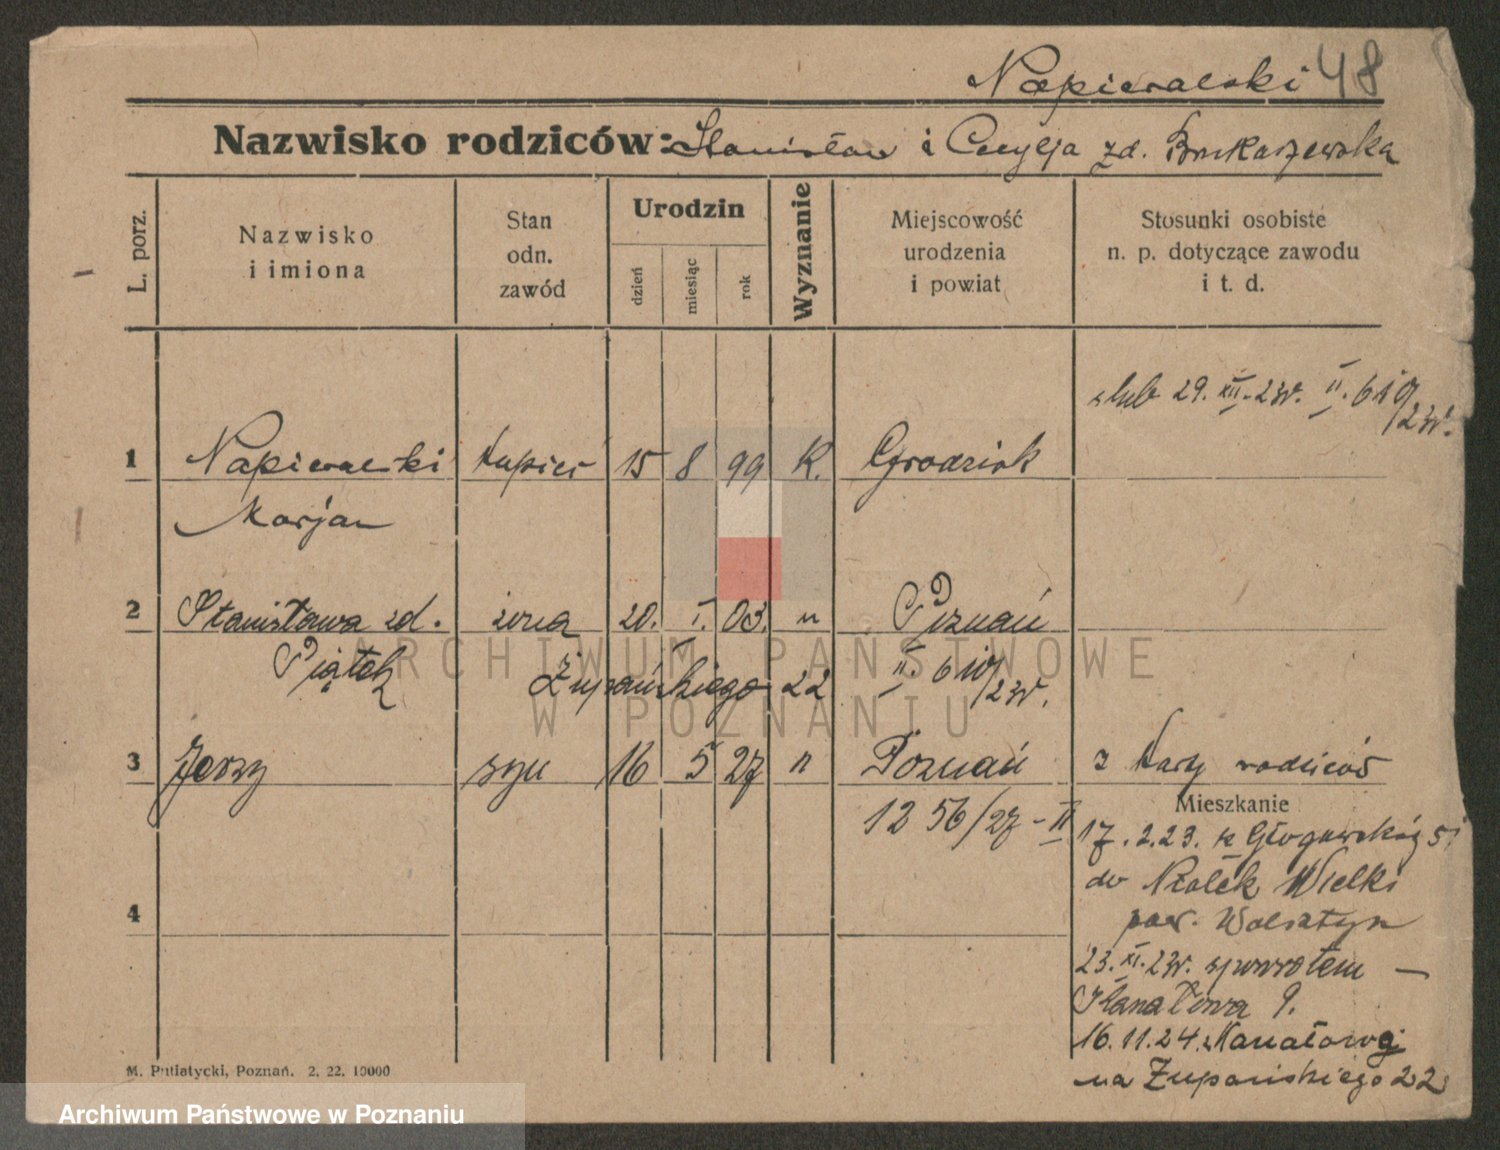 Napieralski 48
Nazwisko rodziców: Stanisław i Cecylja zd. Brukarzewska
L. porz.
Nazwisko
i imiona
Stan
odn.
zawód
Urodzin
dzień
miesiąc
rok
Wyznanie
Miejscowość
urodzenia
i powiat
Stosunki osobiste
n. p. dotyczące zawodu
i t. d.
ślub 29. XII. 23r. II. 610/23r.
1 Napieralski kupiec 15 8 99 K. Grodzisk
Marjan
2 Stanisława zd. żona 20. I. 03. " Poznań
Piątek Żupańskiego 22 II. 610/23r.
3 Jerzy syn 16 5 27 " Poznań z karty rodziców
1256/27-II
Mieszkanie
17.2.23. z Głogowskiej 51
do Wielki
4
pow. Wolsztyn
23.XI.23r. spowrotem —
Kanałowa 9.
16.11.24. Kanałowej
na Żupańskiego 22
M. Putiatycki, Poznań. 2. 22. 10000
ARCHIWUM PAŃSTWOWE
W POZNANIU
Archiwum Państwowe w Poznaniu